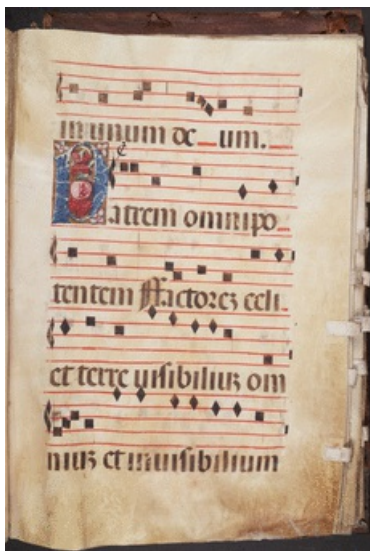 in unum de um.
atrem omnipo
tentem Factorez celi.
et terre uisibiliuz om
niuz et inuisibilium